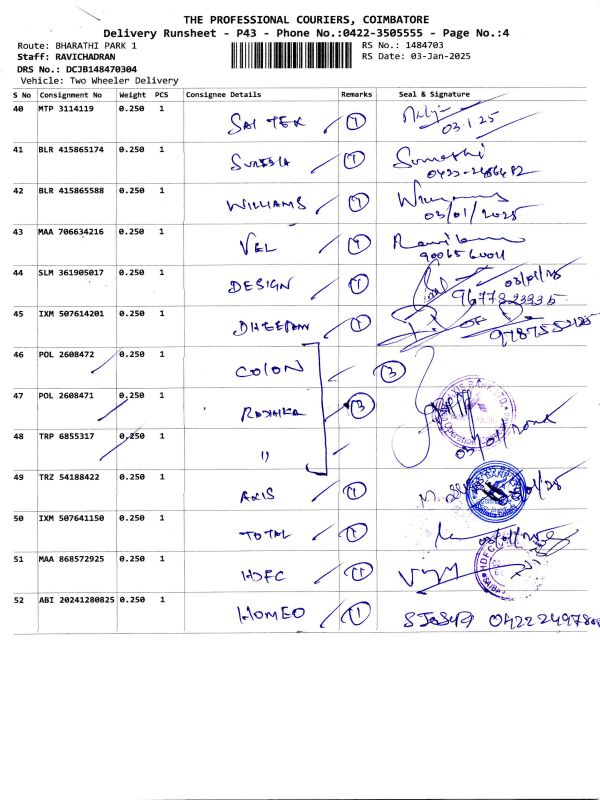 THE PROFESSIONAL COURIERS, COIMBATORE
Delivery Runsheet - P43 - Phone No.:0422-3505555 - Page No.:4
Route: BHARATHI PARK 1 RS No.: 1484703
Staff: RAVICHADRAN RS Date: 03-Jan-2025
DRS No.: DCJB148470304
Vehicle: Two Wheeler Delivery
S No Consignment No Weight PCS Consignee Details Remarks Seal & Signature
40 MTP 3114119 0.250 1 SAI TEK 1
03.1.25
41 BLR 415865174 0.250 1 SURESIA 1
42 BLR 415865588 0.250 1 WILLIAMS 1
03/01/2025
43 MAA 706634216 0.250 1 VEL 1
44 SLM 361905017 0.250 1 DESIGN 1
45 IXM 507614201 0.250 1 DHEEPAM 1
46 POL 2608472 0.250 1 COLON 3
47 POL 2608471 0.250 1 RADHIKA 3
AXIS BANK LTD
48 TRP 6855317 0.250 1 "
49 TRZ 54188422 0.250 1 AXIS 1
50 IXM 507641150 0.250 1 TOTAL 1
51 MAA 868572925 0.250 1 HDFC 1
HDFC
52 ABI 20241280825 0.250 1 HOMEO 1